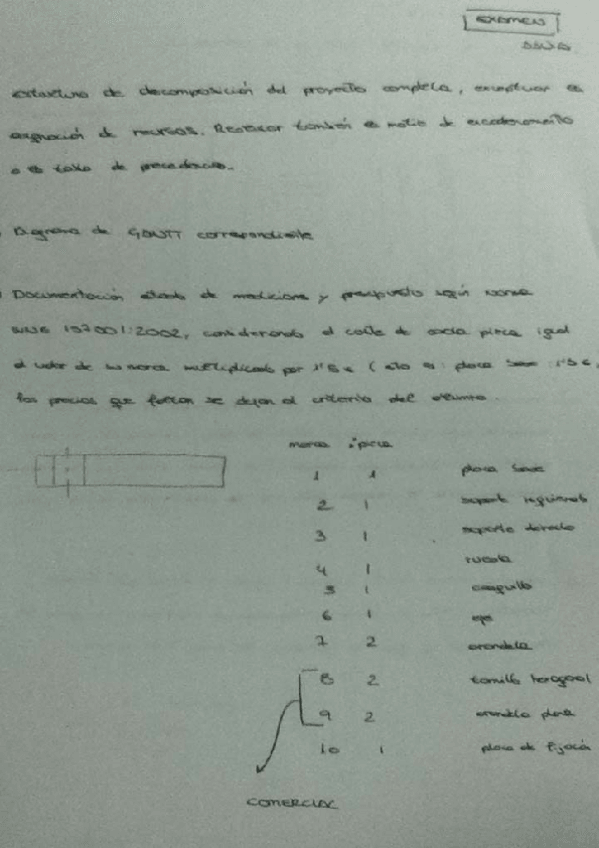 EXAMEN
estructura de descomposición del proyecto completa, exceptuar la
asignación de recursos. Realizar también la matriz de encadenamiento
o la tabla de precedencias.
Diagrama de GANTT correspondiente
Documentación estado de mediciones y presupuesto según norma
UNE 157001:2002, considerando el coste de cada pieza igual
al valor de su marca multiplicado por 1'5 € (esto es: placa base 1'5 €,
los precios que faltan se dejan al criterio del alumno.
marca pieza
1 1 placa base
2 1 soporte izquierdo
3 1 soporte derecho
4 1 rueda
5 1 casquillo
6 1 eje
7 2 arandela
8 2 tornillo hexagonal
9 2 arandela plana
10 1 placa de fijación
COMERCIAL